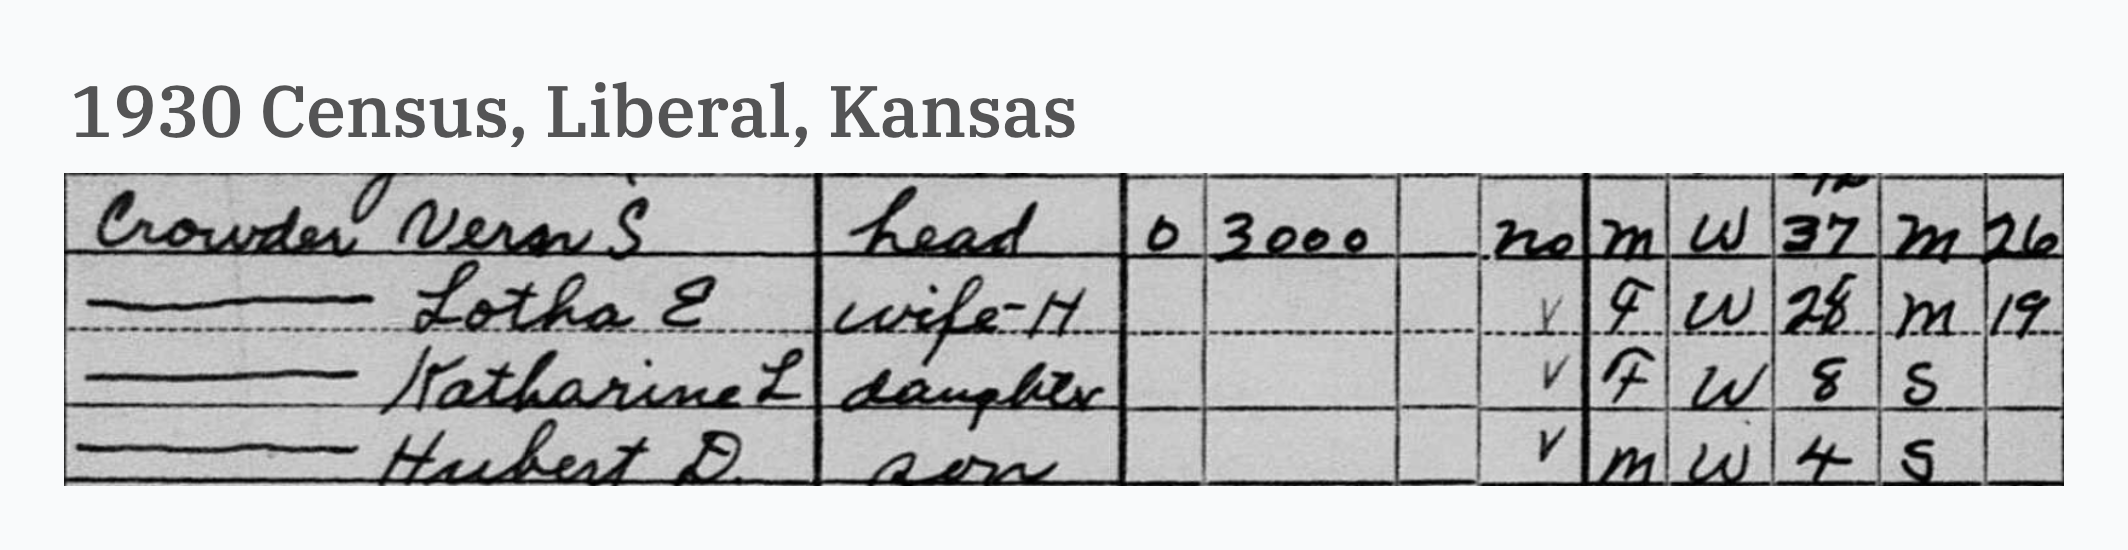 1930 Census, Liberal, Kansas
Crowder Vern S head 0 3000 no M W 37 M 26
Lotha E wife-H V F W 28 M 19
Katharine L daughter V F W 8 S
Hubert D. son V M W 4 S